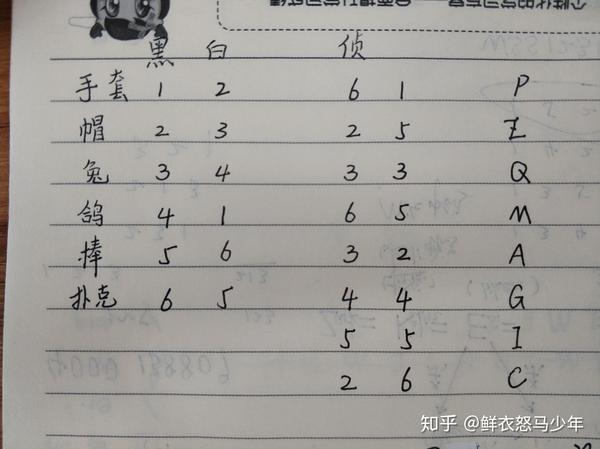 黑 白 侦
手套 1 2 6 1 P
帽 2 3 2 5 Z
兔 3 4 3 3 Q
鸽 4 1 6 5 M
棒 5 6 3 2 A
扑克 6 5 4 4 G
5 5 I
2 6 C
知乎 @鲜衣怒马少年